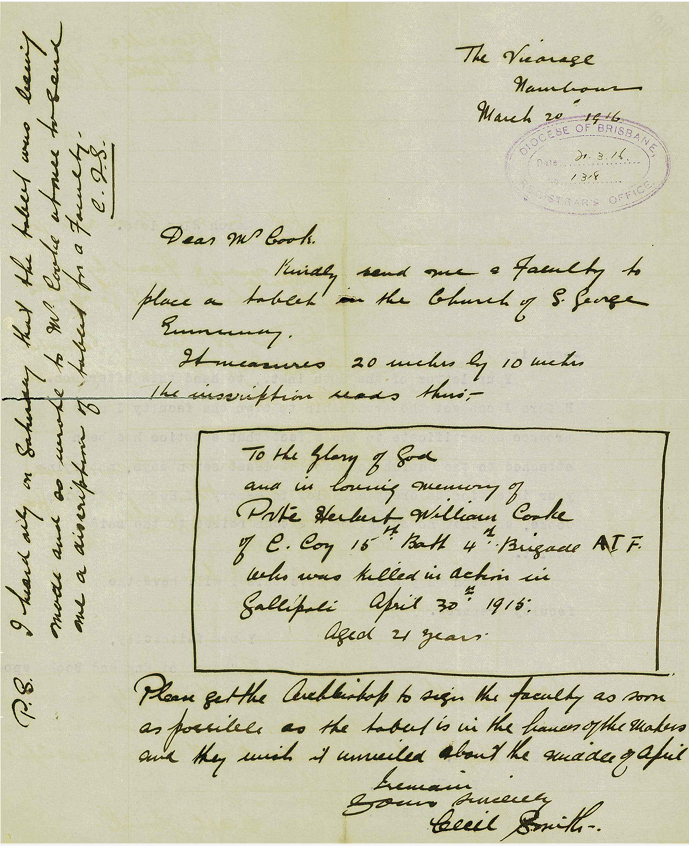 The Vicarage
Nambour
March 20" 1916.
DIOCESE OF BRISBANE,
Date 21.3.16.
1318
REGISTRAR'S OFFICE.
Dear Mr Cook.
Kindly send me a Faculty to
place a tablet in the Church of S. George
Eumundy.
It measures 20 inches by 10 inches
the inscription reads thus:-
To the Glory of God
and in loving memory of
Prte Herbert William Cooke
of C. Coy 15th Batt 4th Brigade A I F.
who was killed in action in
Gallipoli April 30th 1915.
Aged 21 years.
Please get the Archbishop to sign the faculty as soon
as possible as the tablet is in the hands of the Makers
and they wish it unveiled about the middle of April
I remain
Yours sincerely
Cecil Smith-.
P.S. I heard only on Saturday that the tablet was being
made and so wrote to Mr Cooke at once to send
me a discription of tablet for a Faculty-
C. J. S.